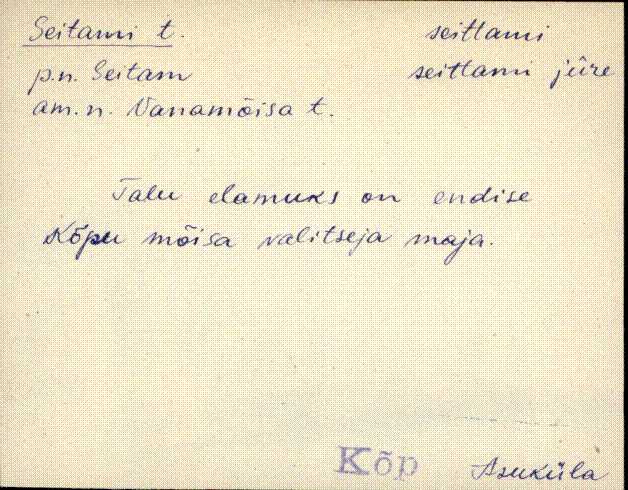 Seitami t. seittami
p.n. Seitam seittami jüre
am.n. Vanamõisa t.
Talu elamuks on endise
Kõpu mõisa valitseja maja.
Kõp Asuküla